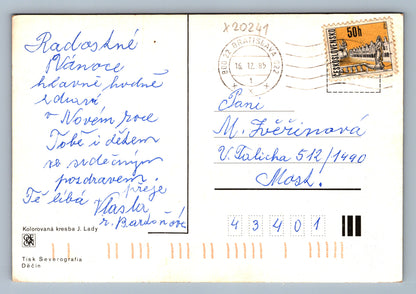 x20241
Radostné
Vánoce
hlavně hodně
zdraví
v Novém roce
Tobě i dětem
se srdečným
pozdravem.
přeje
Tě líbá Vlasta
Kolorovaná kresba J. Lady
Tisk Severografia
Děčín
BRATISLAVA
16.12.85
ČESKOSLOVENSKO
50h
Paní
M. Zvěřinová
V. Talicha 512/1490
Most.
43401